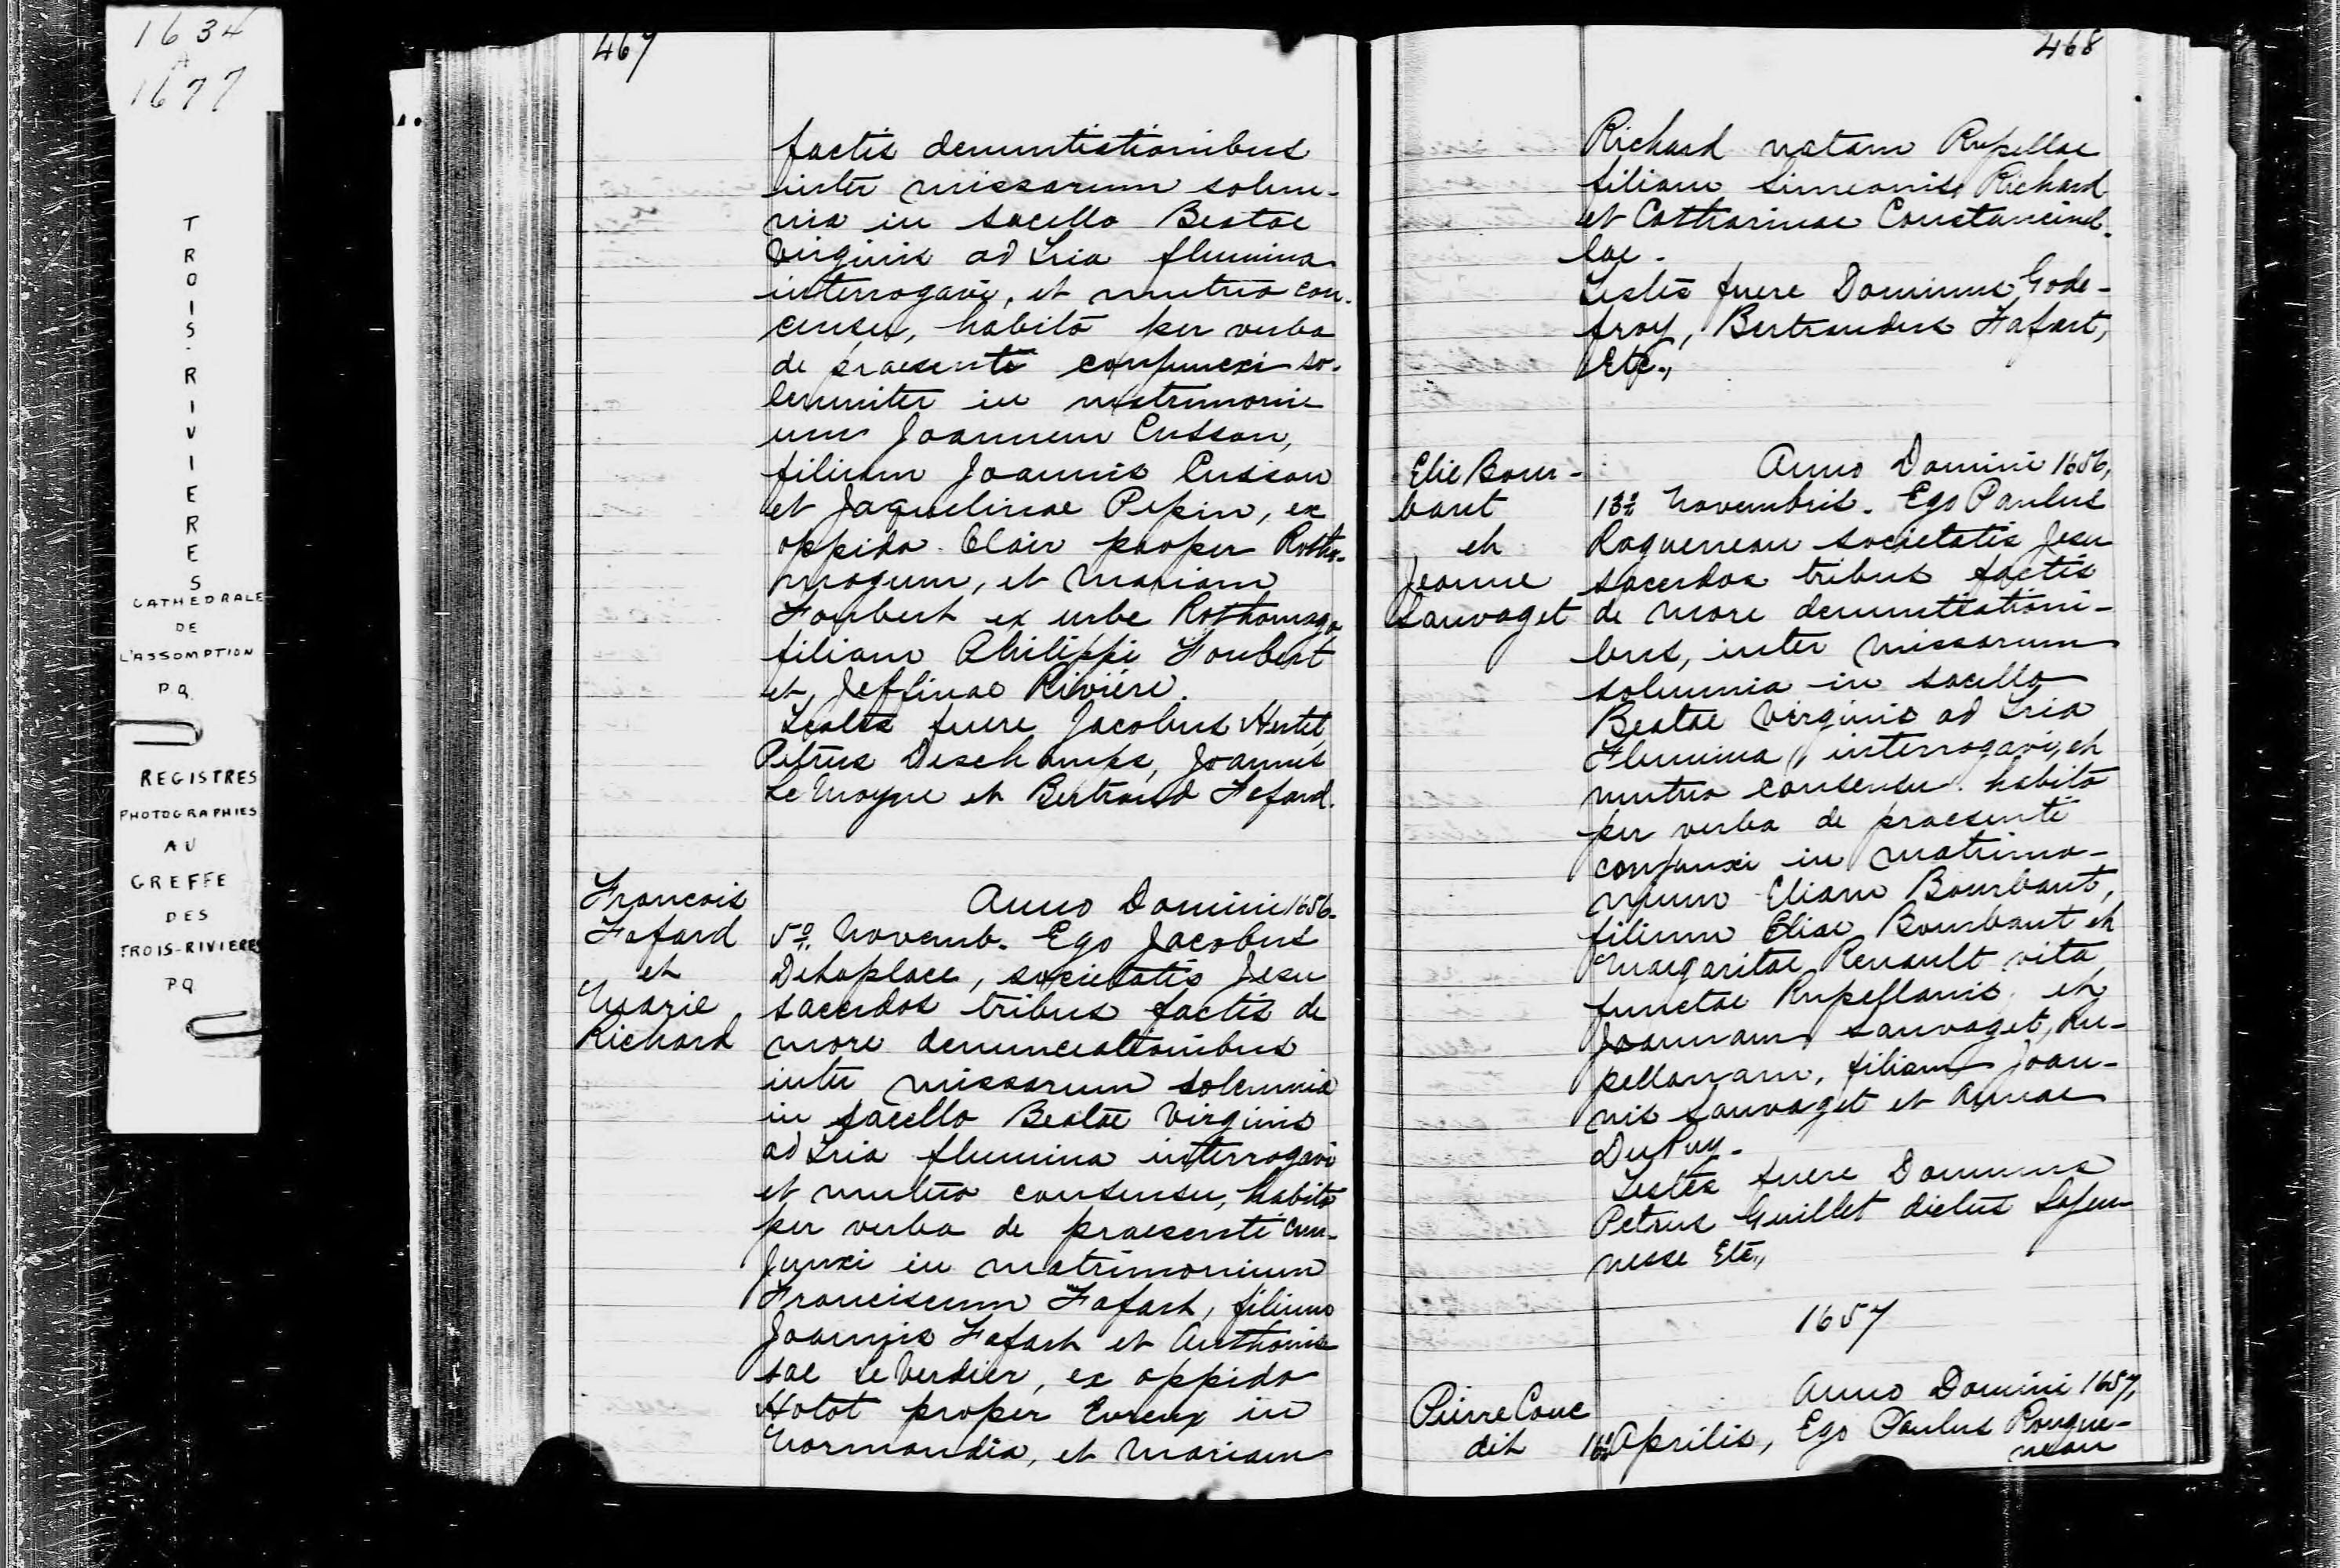 1634
A
1677
TROIS-RIVIERES
CATHEDRALE
DE
L'ASSOMPTION
P.Q.
REGISTRES
PHOTOGRAPHIES
AU
GREFFE
DES
TROIS-RIVIERES
PQ
467
factis denuntiationibus
inter missarum solem-
nia in sacello Beatae
Virginis ad Tria flumina
interrogavi, et mutuo con-
censu, habito per verba
de praesenti conjunexi so-
lemniter in matrimoni
um Joannem Cusson,
filium Joannis Cusson
et Jaquelinae Pepin, ex
oppido Clair prooper Rotho-
magum, et Mariam
Foubert ex urbe Rothomago
filiam Philippi Foubert
et Jeffinae Rivière.
Testes fuere Jacobus Hertel,
Petrus Deschamps, Joannes
Le Moyne et Bertrand Fafard.
Francois
Fafard
et
Marie
Richard
Anno Domini 1656.
5o Novemb. Ego Jacobus
Delaplace, societatis Jesu
sacerdos tribus factis de
more denunciationibus
inter missarum solemnia
in sacello Beatae Virginis
ad Tria flumina interrogavi
et mutuo consensu, habito
per verba de praesenti con-
junxi in matrimonium
Franciscum Fafart, filium
Joannis Fafart et Anthonis
sae Le Verdier, ex oppido
Hotot proper Evreux in
Normandia, et Mariam
468
Richard natam Rupellae
filiam Simeonis Richard
et Catharinae Constancinel-
lae.
Testes fuere Dominus Gode-
froy, Bertrandus Fafart,
Etc.,
Elie Bour-
baut
et
Jeanne
Sauvaget
Anno Domini 1656,
13a Novembris. Ego Paulus
Ragueneau societatis Jesu
sacerdos tribus factis
de more denuntiationi-
bus, inter missarum
solemnia in sacello
Beatae Virginis ad Tria
Flumina, interrogavi, et
mutuo consensu habito
per verba de praesenti
conjunxi in matrimo-
nium Eliam Bourbaut,
filium Eliae Bourbaut et
Margaritae Renault vita
functae Rupellanis et
Joannam Sauvaget, Ru-
pellanam, filiam Joan-
nis Sauvaget et Annae
DuPuy.
Testes fuere Dominus
Petrus Guillet dictus Lajeu
nesse Etc.,
1657
Pierre Couc
dit
Anno Domini 1657,
16a Aprilis, Ego Paulus Rague-
neau